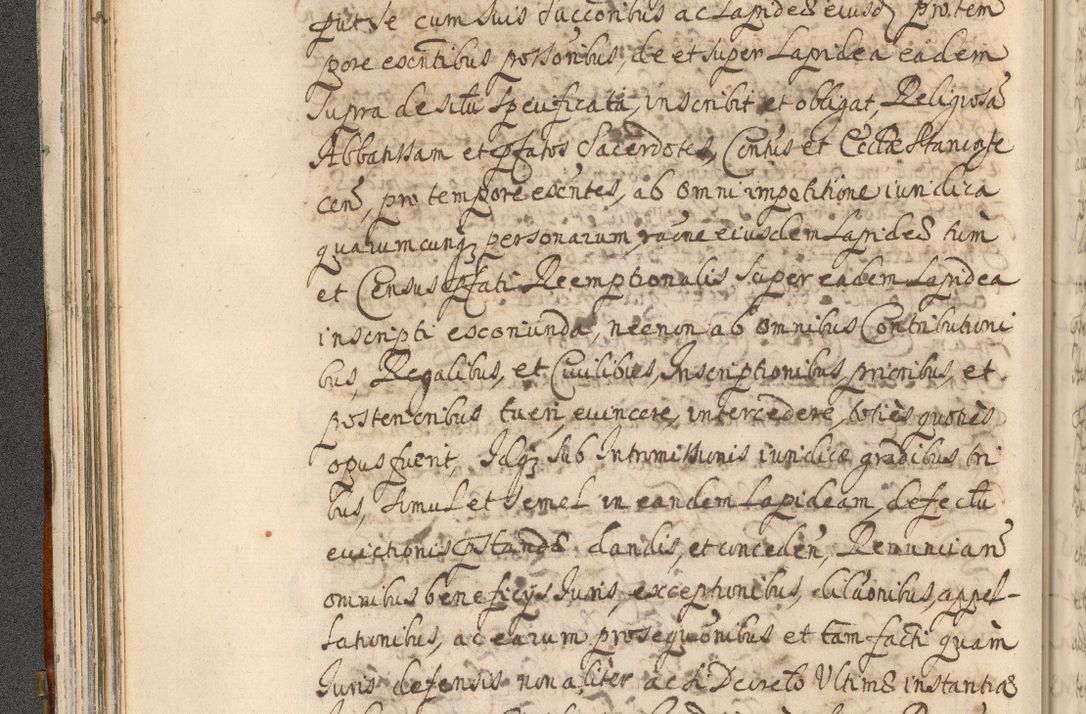 qut se cum suis successoribus ac Lapideæ eiusdẽ pro tem
pore exentibus possoribus, de et super Lapidea eadem
supra de situ specificata, inscribit et obligat, Religiosã
Abbatissam et pfatos Sacerdotes, Contus et Eccłæ Staniąte
cen̄, pro tempore exentes, ab omni impetitione iuridica
quarumcunq̃ personarum, raõne eiusdem Lapideæ tùm
et Census pfati Reemptionalis super eadem Lapidea
inscripti exoriunda, nec non ab omnibus Contributioni
bus, Regalibus, et Civilibus, Inscriptionibus, prioribus, et
posterioribus tueri, evincere, intercedere, toties quoties
opus fuerit, Idq̃ sub Intromissionis iuridicæ gradibus tri
bus, simul et semel in eandem Lapideam, defectu
evictionis pstandæ dandis, et conceden̄, Renuncian̄
omnibus beneficÿs Iuris, exceptionibus, dilãonibus, appel-
lationibus, ac earum prosequõnibus et tam facti quàm
Iuris defensis non aliter ac di Decreto Ultimæ instantiæ